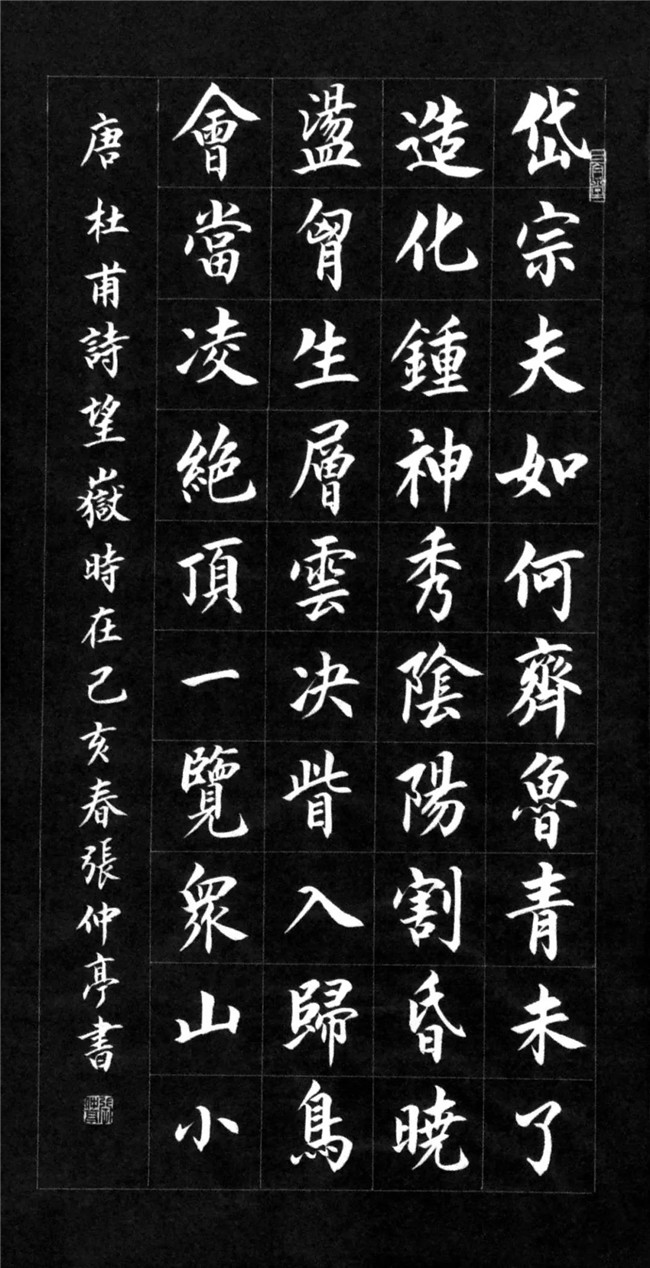 岱宗夫如何齊魯青未了
造化鍾神秀陰陽割昏曉
盪胷生層雲决眥入歸鳥
會當凌絕頂一覽眾山小
唐杜甫詩望嶽時在己亥春張仲亭書